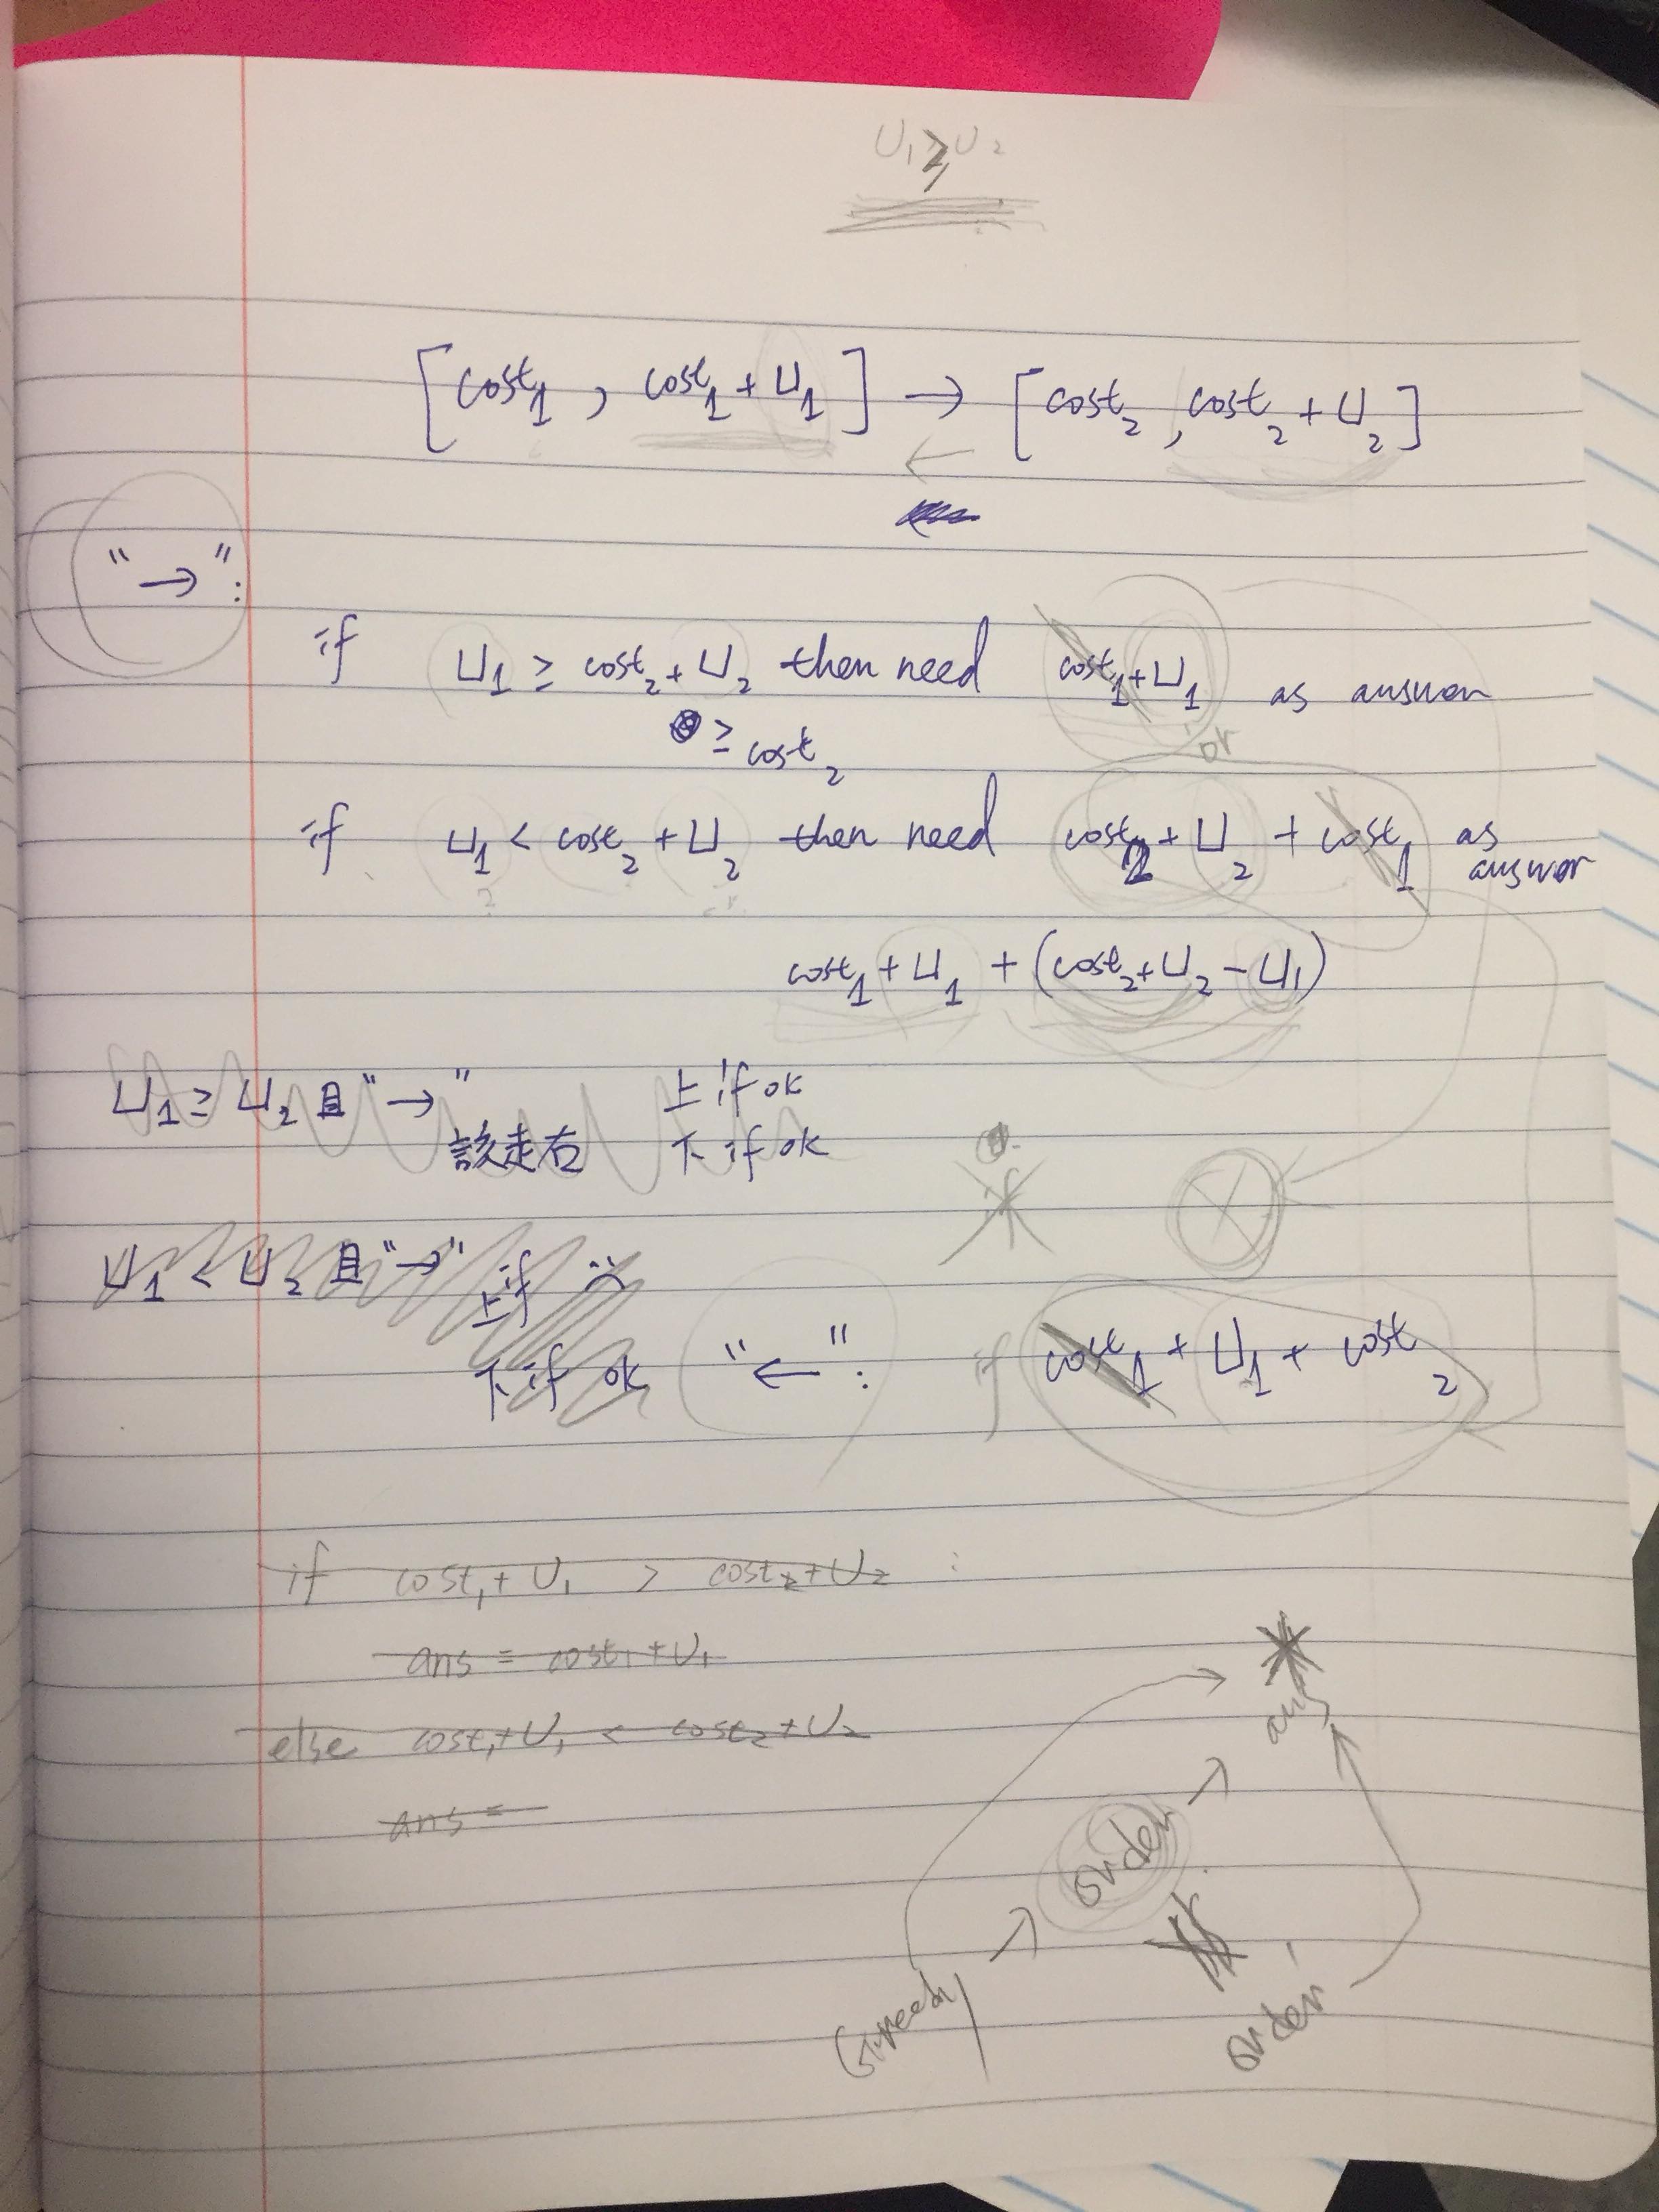 U₁ ≥ U₂
[cost₁ , cost₁ + U₁] → [cost₂ , cost₂ + U₂]
←
"→":
if U₁ ≥ cost₂ + U₂ then need cost₁ + U₁ as answer
≥ cost₂
or
if U₁ < cost₂ + U₂ then need cost₂ + U₂ + cost₁ as
answer
cost₁ + U₁ + (cost₂ + U₂ - U₁)
U₁ ≥ U₂ 且 "→" 上 if ok
該走右 下 if ok
if
U₁ < U₂ 且 "→" 上 if
下 if ok "←": if cost₁ + U₁ + cost₂
if cost₁ + U₁ > cost₂ + U₂ :
ans = cost₁ + U₁
else cost₁ + U₁ < cost₂ + U₂
ans =
ans
order
Greedy
order'